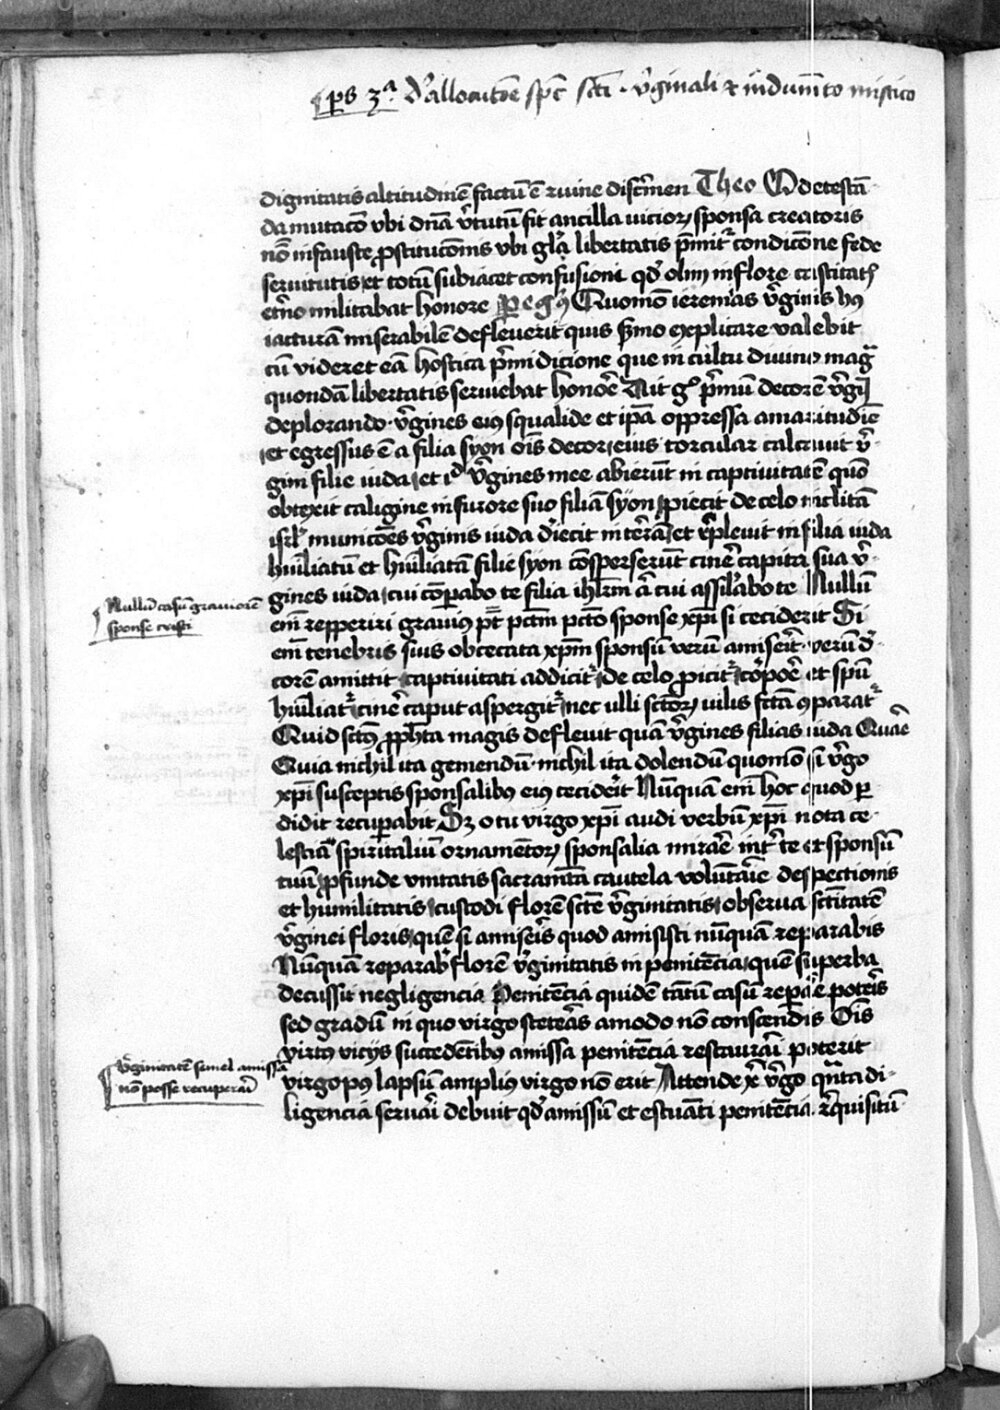 ps 3ª d'allocutōe spc scti v'ginali & indumēto mistico
dignitatis altitudinē factū ē ruine discͥmen Theo O detestā
da mutacō vbi dnā v'tutū fit ancilla vicioꝝ sponsa creatoris
nō infauste ꝓstitucōnis vbi gl'a libertatis p̄mitͬ condicōne fede
seruitutis et totū subiacet confusioni qd' olim in flore castitatis
et'no militabat honore Pegꝰ Quomō ieremias v'ginis hꝰ
iacturā miserabilē defleuerit quis s'mo explicare valebit
cū videret eā hostica p̄mi dicione que in cultu diuino mag
quondā libertatis seruiebat honōe Ait gͦ p'mū decorē v'gī
deplorando v'gines eiꝰ squalide et ip̄a oppressa amaritudiē
et egressus ē a filia syon oīs decor eius torcular calcauit v'
gini filie iuda et id' v'gines mee abierūt in captiuitatē quō
obtexit caligine in furore suo filiā syon ꝓiecit de celo inclitā
isrl' municōes v'ginis iuda d'iecit in terā et r'pleuit in filia iuda
hūiliatū et hūiliatā filie syon cōsperserūt cinē capita sua v'
gines iuda cui cōpabo te filia ihrlm aͭ cui assi'labo te Nullū
em̄ repperiri grauiꝰ pt̄ pctm pcto sponse xp̄i si ceciderit Si
em̄ tenebris suis obcecata xp̄m sponsū verū amiserit verū d'
corē amittit captiuitati addicitͬ de celo ꝓicitͬ co'poē et spū
hūiliatͬ cinē caput aspergitͬ nec ulli sctōꝝ uilis scta ꝯparatͬ
Quid sctꝰ ꝓph̄ta magis defleuit quā v'gines filias iuda Quaē
Quia nichil ita gemendū nichil ita dolendū quomō si v'go
xp̄i susceptis sponsalibꝰ eiꝰ ceciderit Nūquā em̄ hoc quod per
didit recuꝑabit Sꝫ o tu virgo xp̄i audi verbū xp̄i nota ce
lestiā spiritaliū ornamētoꝝ sponsalia miraē int' te et sponsū
tuū ꝓfunde vnitatis sacramēta cautela volūtarie despectionis
et humilitatis custodi florē sctē v'ginitatis obserua sctitatē
v'ginei floris quē si amiseis quod amisisti nūquā reparabis
Nūquā reparab' florē v'ginitatis in penitēcia quē superba
decussit negligencia Penitēcia quidē tātū casū reparāe poteis
sed gradū in quo virgo steteas amodo nō conscendis Oīs
virtꝰ vicijs succedētibꝰ amissa penitēcia restaurai poterit
virgo pꝰ lapsū ampliꝰ virgo nō erit Attende xͬ v'go qnta di
ligencia seruai debuit qd' amissū et estuāti penitēcia r'quisitū
Nullū casū grauiorē
sponse cristi
v'ginitatē semel amissā
nō posse recuperai